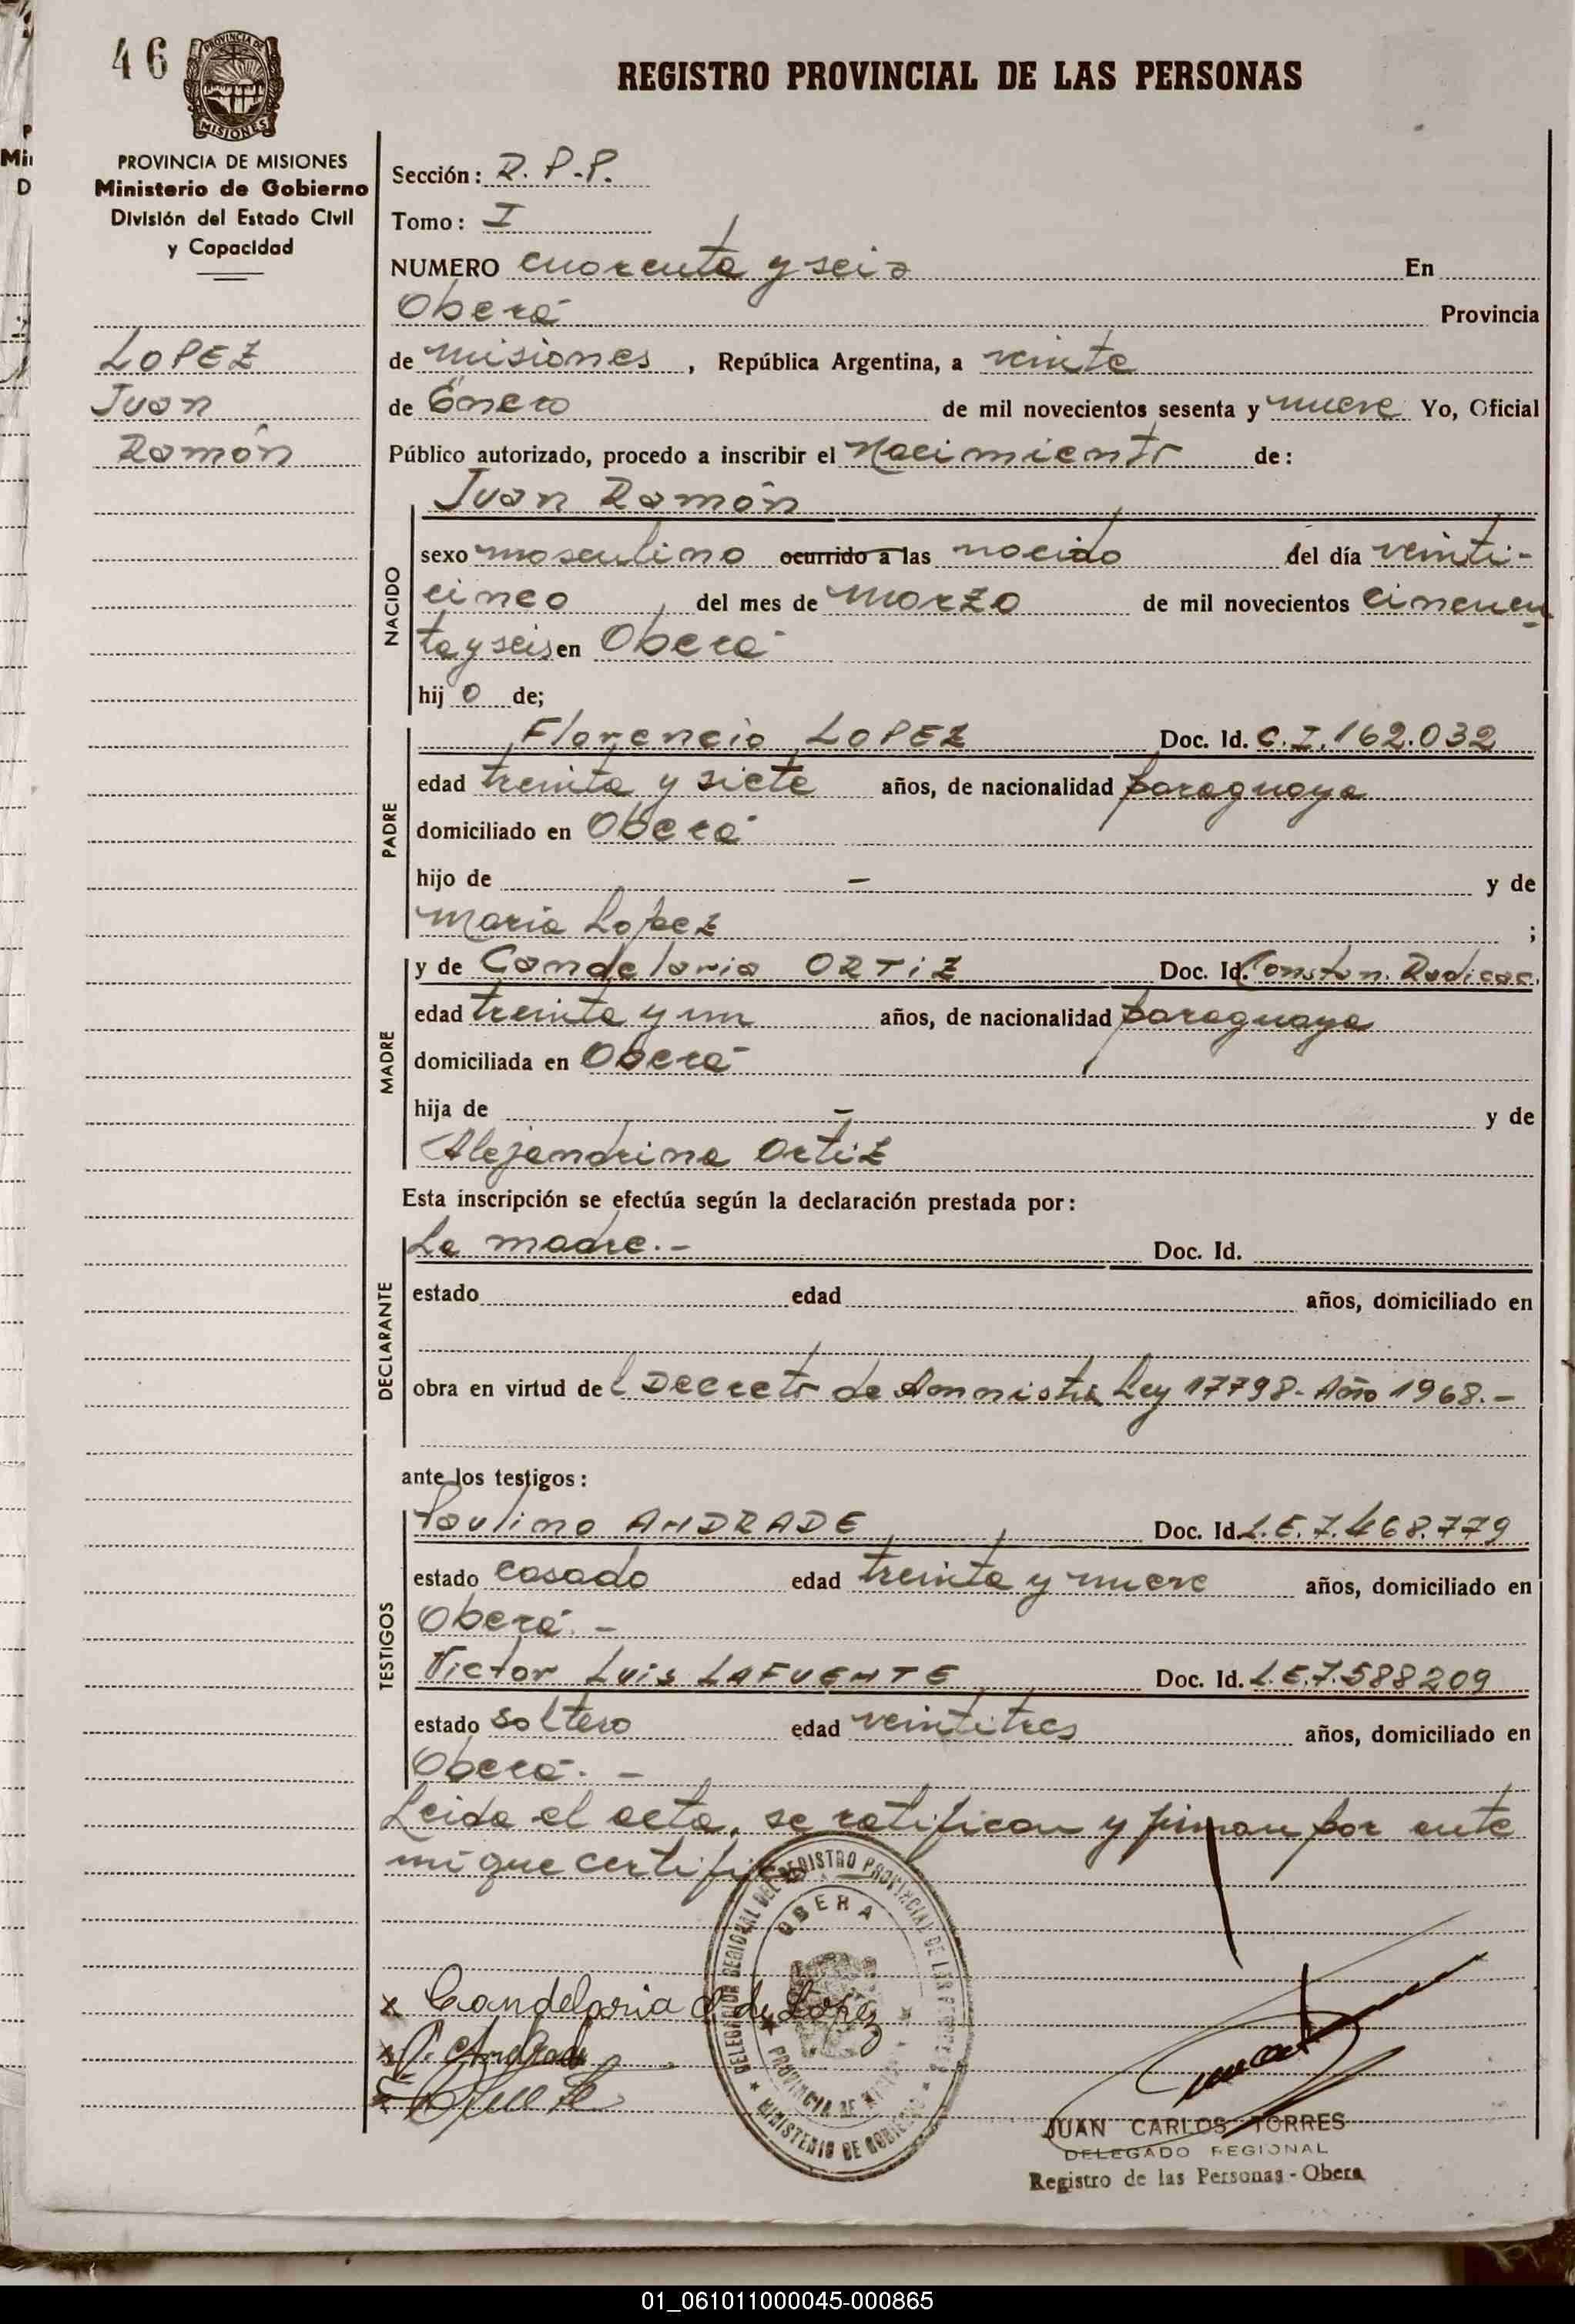 46
PROVINCIA DE
MISIONES
REGISTRO PROVINCIAL DE LAS PERSONAS
PROVINCIA DE MISIONES
Ministerio de Gobierno
División del Estado Civil
y Capacidad
LOPEZ
Juan
Ramón
Sección: R. P.P.
Tomo: I
NUMERO cuarenta y seis En
Oberá Provincia
de Misiones, República Argentina, a veinte
de Enero de mil novecientos sesenta y nueve Yo, Oficial
Público autorizado, procedo a inscribir el Nacimiento de:
Juan Ramón
NACIDO
sexo masculino ocurrido a las nacido del día veinti-
cinco del mes de Marzo de mil novecientos cincuen
ta y seis en Oberá
hij o de;
PADRE
Florencio LOPEZ Doc. Id. C.I. 162.032
edad treinta y siete años, de nacionalidad paraguaya
domiciliado en Oberá
hijo de - y de
Maria Lopez ;
MADRE
y de Candelaria ORTIZ Doc. Id. Constan. Radicac.
edad treinta y un años, de nacionalidad paraguaya
domiciliada en Oberá
hija de - y de
Alejandrina Ortiz
Esta inscripción se efectúa según la declaración prestada por:
DECLARANTE
La madre.- Doc. Id.
estado edad años, domiciliado en
obra en virtud del Decreto de Amnistia Ley 17798- Año 1968.-
ante los testigos:
TESTIGOS
Paulino ANDRADE Doc. Id. L.E. 7.468.779
estado casado edad treinta y nueve años, domiciliado en
Oberá.-
Victor Luis LAFUENTE Doc. Id. L.E.7.588209
estado soltero edad veintitres años, domiciliado en
Oberá.-
Leida el acta, se ratifican y firman por ante
mi que certifico
DELEGACION REGIONAL DEL REGISTRO PROVINCIAL DE LAS PERSONAS
OBERA
PROVINCIA DE MISIONES
MINISTERIO DE GOBIERNO
x Candelaria O de Lopez
x P. Andrade
JUAN CARLOS TORRES
DELEGADO REGIONAL
Registro de las Personas - Obera
01_061011000045-000865